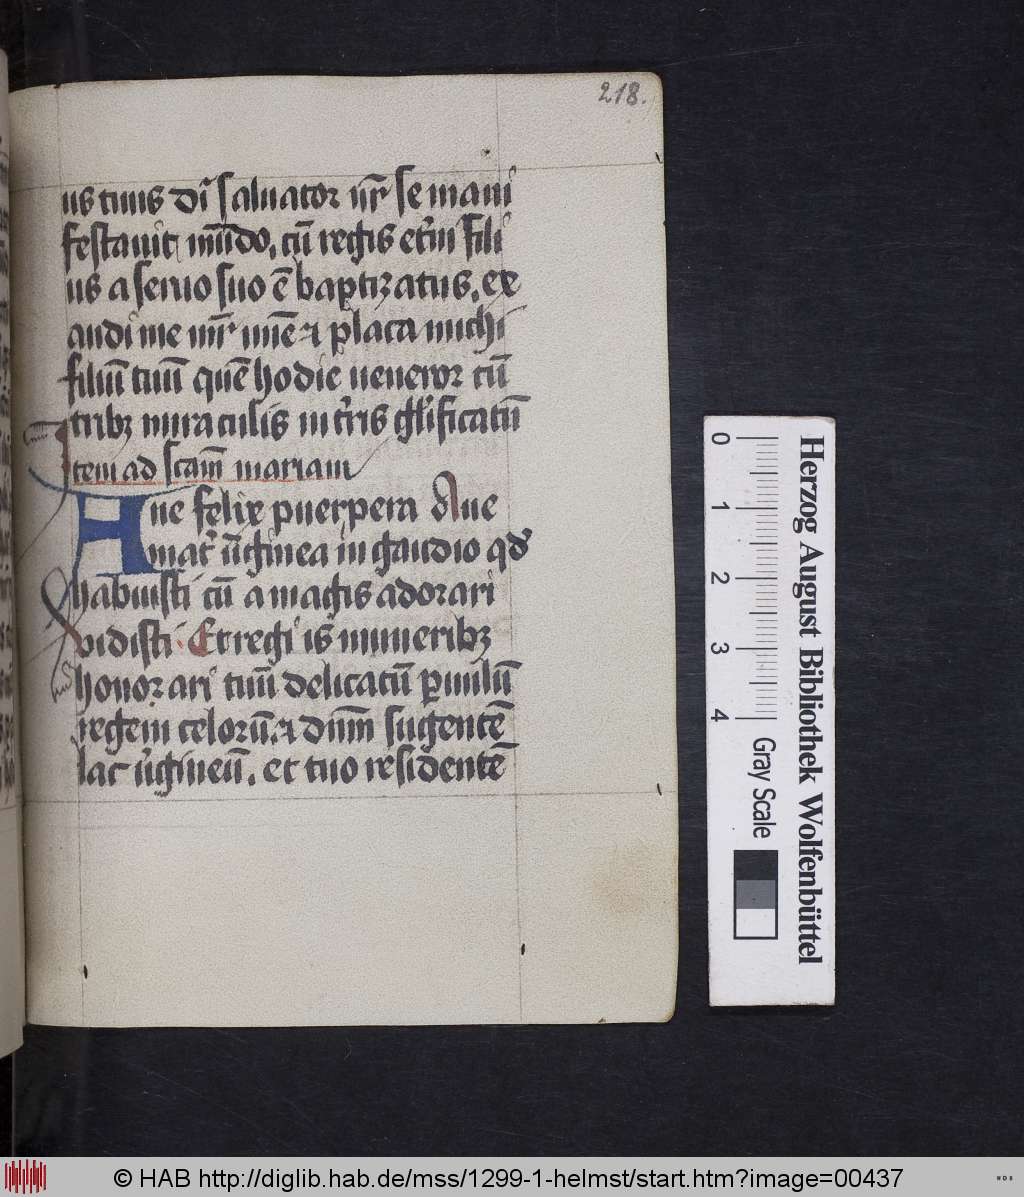 218.
us tuus dn̄s saluator nr̄ se mani
festauit mūdo, cū regis et̄ni fili
us a seruo suo ē baptizatus, ex
audi me mr̄ mīe ⁊ placa michi
filiū tuū quē hodie ueneror cū
tribꝫ miraculis in t̄ris gl̄ificatū
Item ad scām mariam
Aue felix puerpera Aue
mat̄ v̄ginea in gaudio qd̄
habuisti cū a magis adorari
vidisti. Et regiis muneribꝫ
honorari tuū delicatū puulū
regem celorū. ⁊ dnm̄ sugentē
lac v̄gineū. et tuo residentē
0 1 2 3 4
Gray Scale
Herzog August Bibliothek Wolfenbüttel
© HAB http://diglib.hab.de/mss/1299-1-helmst/start.htm?image=00437